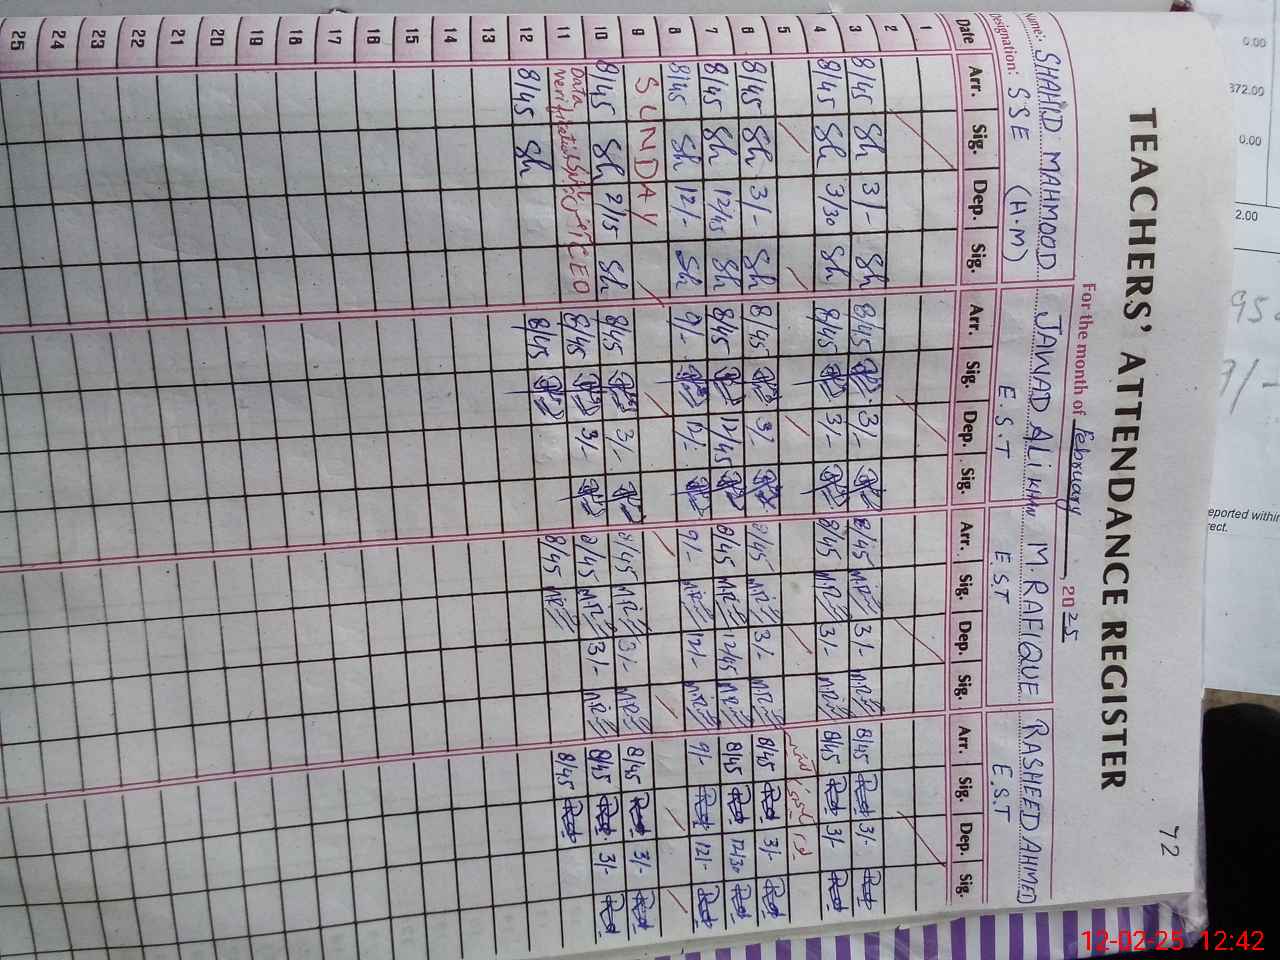 72
TEACHERS' ATTENDANCE REGISTER
For the month of February, 2025
Name: SHAHID MAHMOOD JAWAD ALI KHAN M. RAFIQUE RASHEED AHMED
Designation: SSE (H.M) E.S.T E.S.T E.S.T
Date Arr. Sig. Dep. Sig. Arr. Sig. Dep. Sig. Arr. Sig. Dep. Sig. Arr. Sig. Dep. Sig.
1
2
3 8/45 Sh 3/- Sh 8/45 3/- 8/45 M.R 3/- M.R 8/45 3/-
4 8/45 Sh 3/30 Sh 8/45 3/- 8/45 M.R 3/- M.R 8/45 3/-
5
6 8/45 Sh 3/- Sh 8/45 3/- 8/45 M.R 3/- M.R 8/45 3/-
7 8/45 Sh 12/45 Sh 8/45 12/45 8/45 M.R 12/45 M.R 8/45 12/30
8 8/45 Sh 12/- Sh 9/- 12/- 9/- M.R 12/- M.R 9/- 12/-
9 SUNDAY
10 8/45 Sh 2/15 Sh 8/45 3/- 8/45 M.R 3/- M.R 8/45 3/-
11 Data verification CEO 8/45 3/- 8/45 M.R 3/- M.R 8/45 3/-
12 8/45 Sh 8/45 8/45 M.R 8/45
13
14
15
16
17
18
19
20
21
22
23
24
25
0.00
372.00
0.00
2.00
eported within
rect.
12-02-25 12:42